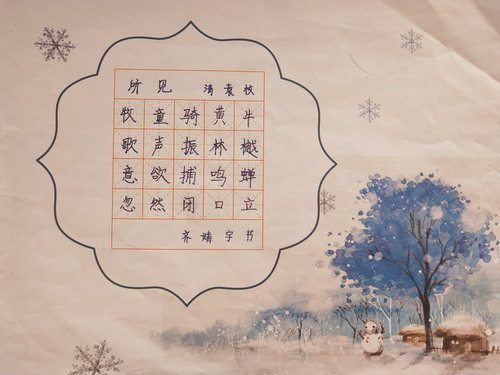 所见 清 袁枚
牧童骑黄牛
歌声振林樾
意欲捕鸣蝉
忽然闭口立
齐婧宇书